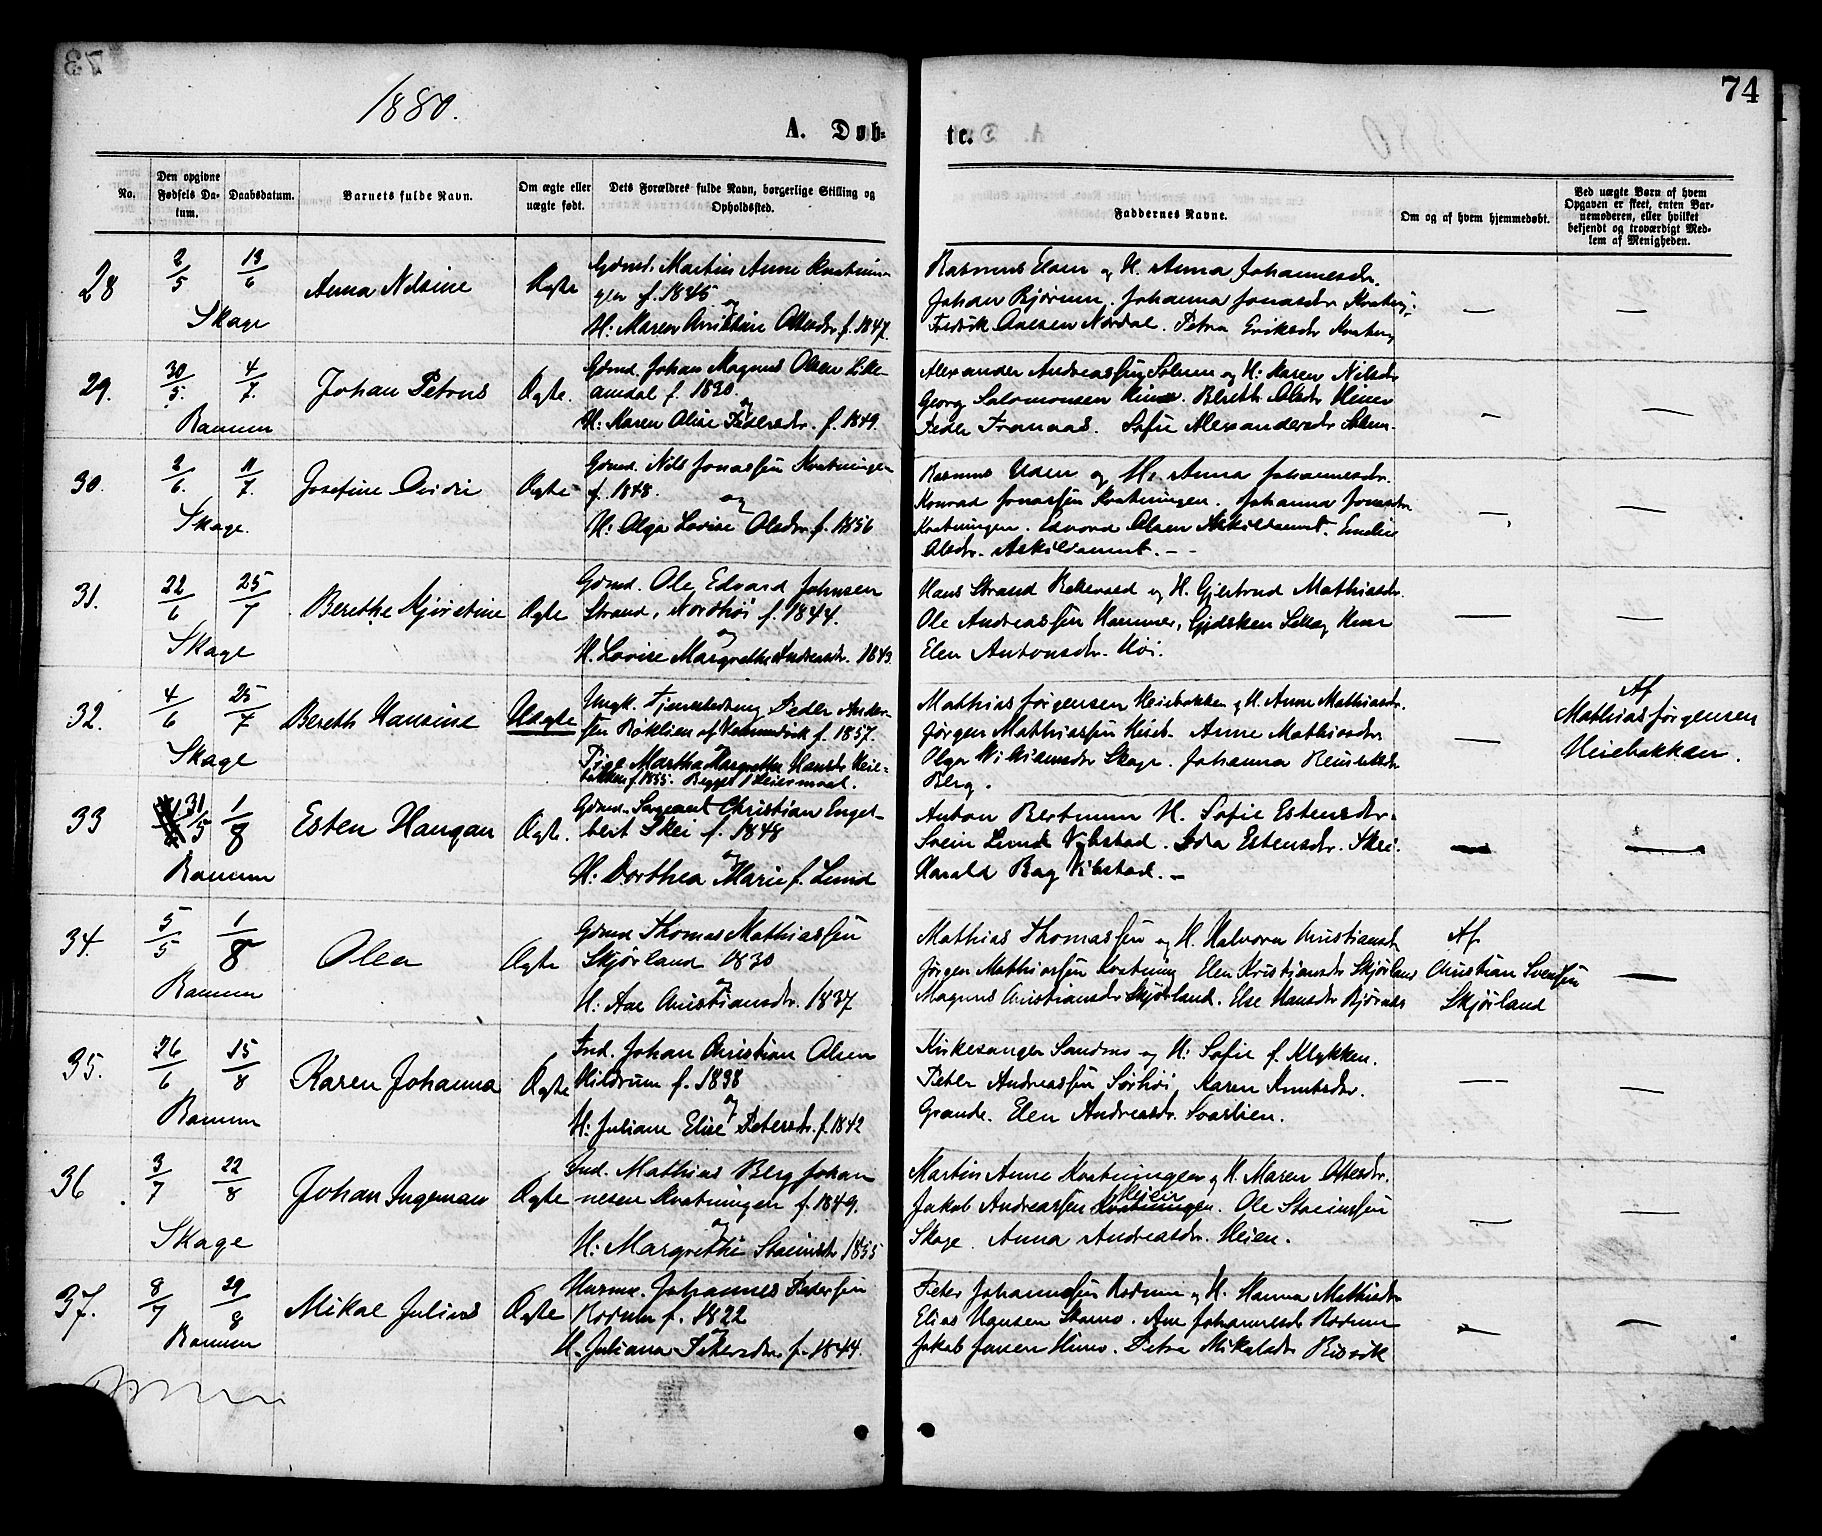 73
1880.
A. Døb-
te.
74
No.
Den opgivne Fødsels Da-
tum.
Daabsdatum.
Barnets fulde Navn.
Om ægte eller
uægte født.
Dets Forældres fulde Navn, borgerlige Stilling og
Opholdssted.
Faddernes Navne.
Om og af hvem hjemmedøbt.
Ved uægte Børn af hvem
Opgaven er skeet, enten Bar-
nemoderen, eller hvilket
bekjendt og troværdigt Med-
lem af Menigheden.
28
2/5
13/6
Skage
Anna Nilsine
Ægte
Gdmd. Martin Anne Kvatnin-
gen f. 1845
og
H: Maren Christine Ottesdr. f. 1847.
og H. Anna Johannesdr.
Johan Bjørum. Johanna Jonasdr
Fredrik Nordal. Petra Eriksdr
—
—
29.
30/5.
4/7.
Ranum
Johan Petrus
Ægte.
Gdmd. Johan Magnus Olsen
f. 1830.
og
H: Karen Oline Pedersdr. f. 1849.
Alexander Andreassen Solum og H: Karen Nilsdr
Georg Salomonsen Himo. Bereth Olsdr Himo
Peder Tranaas. Sofie Alexandersdr
—
—
30.
2/6.
11/7.
Skage.
Josefine
Ægte
Gdmd. Nils Jonassen Kvatningen
f. 1848.
og
H: Olga Lovise Olsdr. f. 1856
Rasmus og H. Anna Johannesdr.
Konrad Jonassen Kvatningen. Johanna Jonasdr
Kvatningen. Edvard Olsen
Olsdr. — —
—
—
31.
22/6
25/7
Skage
Berethe Kjirstine
Ægte
Gdmd. Ole Edvard Johnsen
Strand, Nordhøi f. 1844.
og
H. Lovise Margrethe Andreasdr. 1843.
Hans Strand og H. Gjertrud Mathiasdr.
Ole Andreassen Hammer,
Elen Antonsdr. Høi.
—
—
32.
4/6
25/7
Skage
Bereth Hansine
Uægte
Ungk. Peder Ander-
sen f. 1857.
Pige Martha Margretha Hansdr Heie-
bakken f. 1855. Begges 1 Leiermaal.
Mathias Jørgensen Heiebakken og H. Anne Mathiasdr.
Jørgen Mathiassen Anne Mathiasdr
Skage. Johanna
Berg.
—
Af
Mathias Jørgensen
Heiebakken.
33
31/5
1/8
Ranum
Esten Haugan
Ægte.
Gdmd. Sergeant Christian Engel-
bert Skei f. 1848
og
H: Dorthea Marie f. Lund
Anton Bertnum H. Sofie Estensdr.
Svein Lund Vibstad. Ida Estensdr. Skei.
Harald Bag Vibstad. —
—
—
34.
5/5
1/8
Ranum
Olea
Ægte
Gdmd Thomas Mathiassen
Skjørland 1830
og
H: Ane Christiansdr. 1837
Mathias Thomassen og H. Halvora Christiansdr
Jørgen Mathiassen Kvatning Elen Kristiansdr Skjørland
Magnus Christiansdr Skjørland. Else Hansdr
Af
Christian Svensen
Skjørland
—
35.
26/6
15/8
Ranum
Karen Johanna
Ægte
Ind. Johan Christian Olsen
Hildrum f. 1838
og
H: Juliane Elise Petersdr. f. 1842
Kirkesanger Sandnes og H: Sofie f. Klykken.
Peter Andreassen Sørhøi, Karen Knutsdr.
Grande. Elen Andreasdr.
—
—
36
3/7
22/8
Skage
Johan Ingeman
Ægte
Ind. Mathias Berg Johan
nesen Kvatningen f. 1849.
og
H: Margrethe 1855
Martin Anne Kvatningen og H. Maren Ottesdr.
Heien
Jakob Andreassen Kvatningen. Ole
Skage. Anna Andreasdr. Heien.
—
—
37.
8/7
29/8
Ranum
Mikal Julius
Ægte
Husmd. Johannes Petersen
Rodum f. 1822
og
H. Juliana Petersdr. f. 1844
Peter Johannessen Rodum og H. Hanna Mathiasdr
Elias Hansen. Ane Johannesdr Rodum
Jakob Jansen Himo. Petra Mikalsdr
—
—